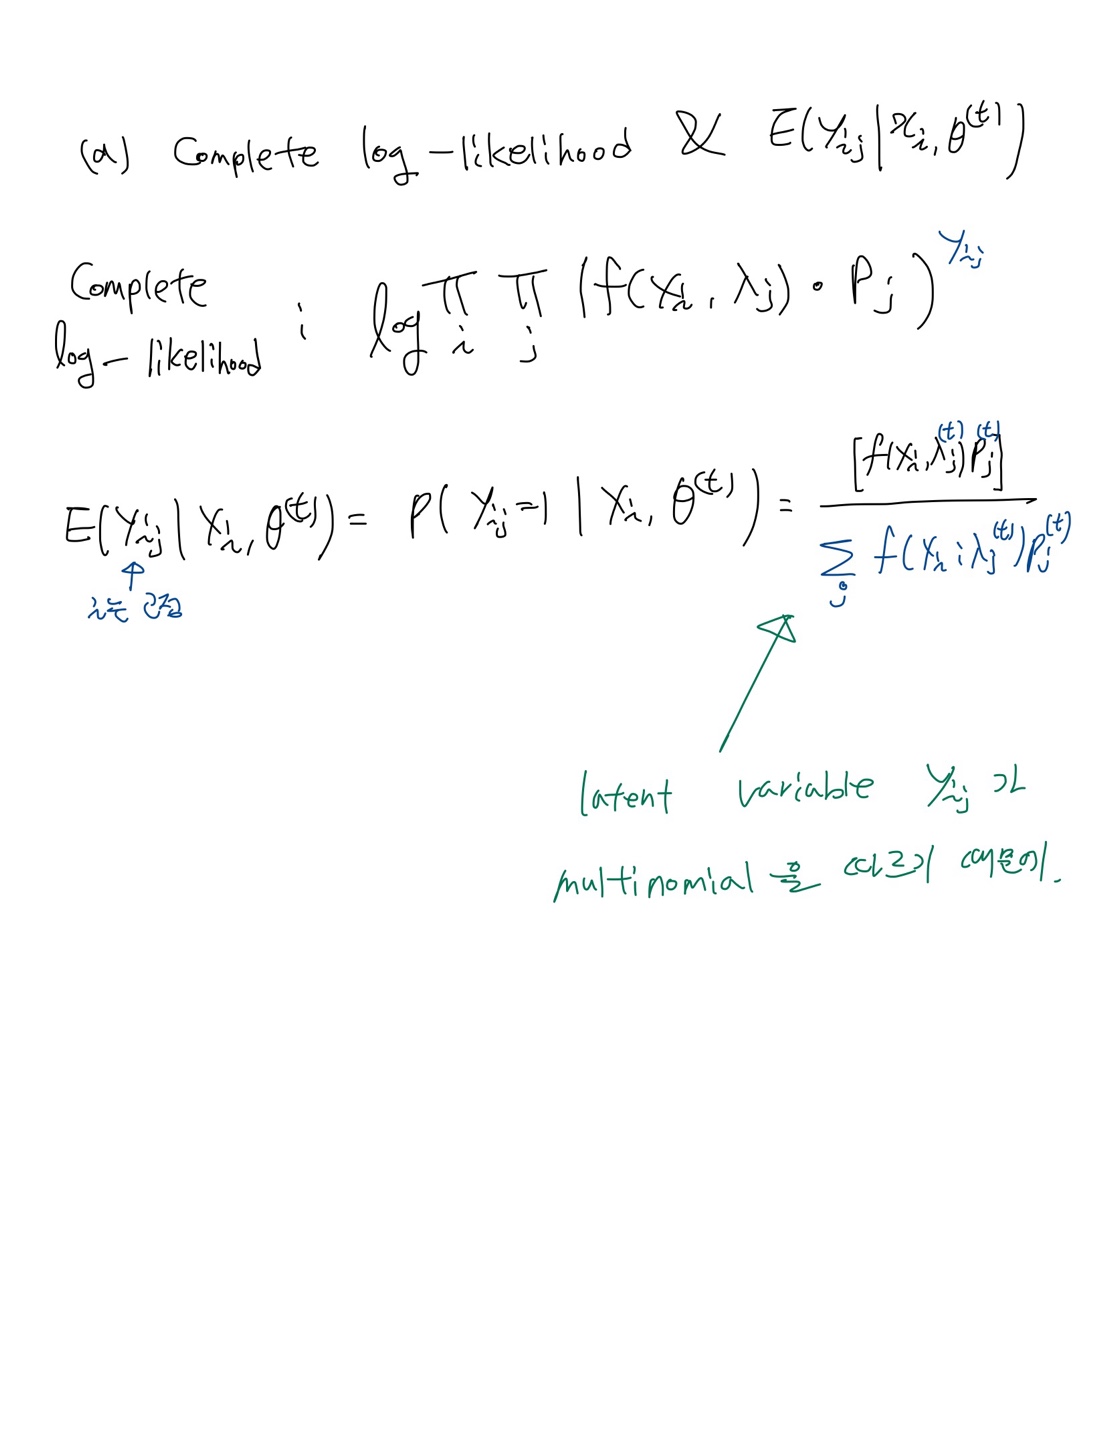 (a) Complete log-likelihood & E(Y_ij | x_i, θ^(t))
Complete log-likelihood : log ∏_i ∏_j (f(x_i, λ_j) · P_j)^{Y_ij}
E(Y_ij | x_i, θ^(t)) = P(Y_ij=1 | x_i, θ^(t)) = [f(x_i, λ_j^(t)) P_j^(t)] / ∑_j f(x_i ; λ_j^(t)) P_j^(t)
i는 고정
latent variable Y_ij 가
multinomial 을 따르기 때문에.